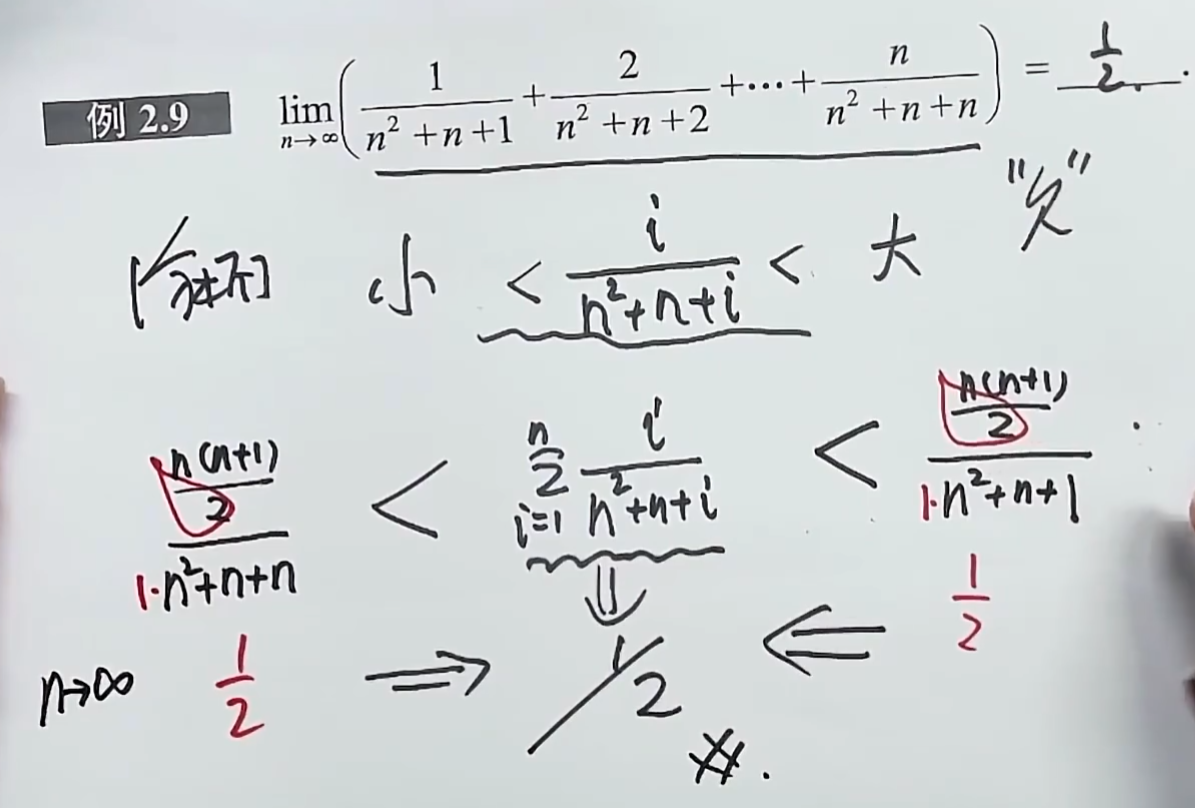 例 2.9 lim n→∞ ( 1/(n²+n+1) + 2/(n²+n+2) +⋯+ n/(n²+n+n) ) = 1/2.
小 < i/(n²+n+i) < 大
(n(n+1)/2)/(1·n²+n+n) < n Σ i=1 i/(n²+n+i) < (n(n+1)/2)/(1·n²+n+1)
⇓
n→∞ 1/2 ⇒ 1/2 ⇐ 1/2
#.